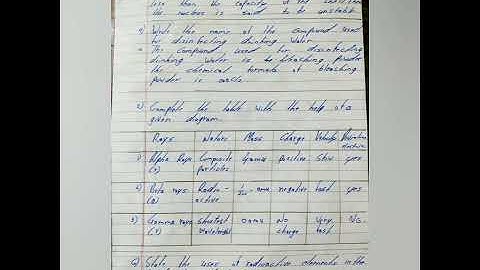 less than the capacity of the
the nucleus is said to be unstable
Write the name of the compound used
for disinfecting drinking water
The compound used for disinfecting
drinking water is to bleaching powder
the chemical formula of bleaching
powder is
Complete the table with the help of a
given diagram.
Rays Nature Mass Charge Velocity
1) Alpha Rays Composite particles 4amu positive Slow yes
2) Beta rays Radio-active amu negative fast yes
3) Gamma rays shortest wavelength 0 amu No charge Very fast No.
State the uses of radioactive elements in the